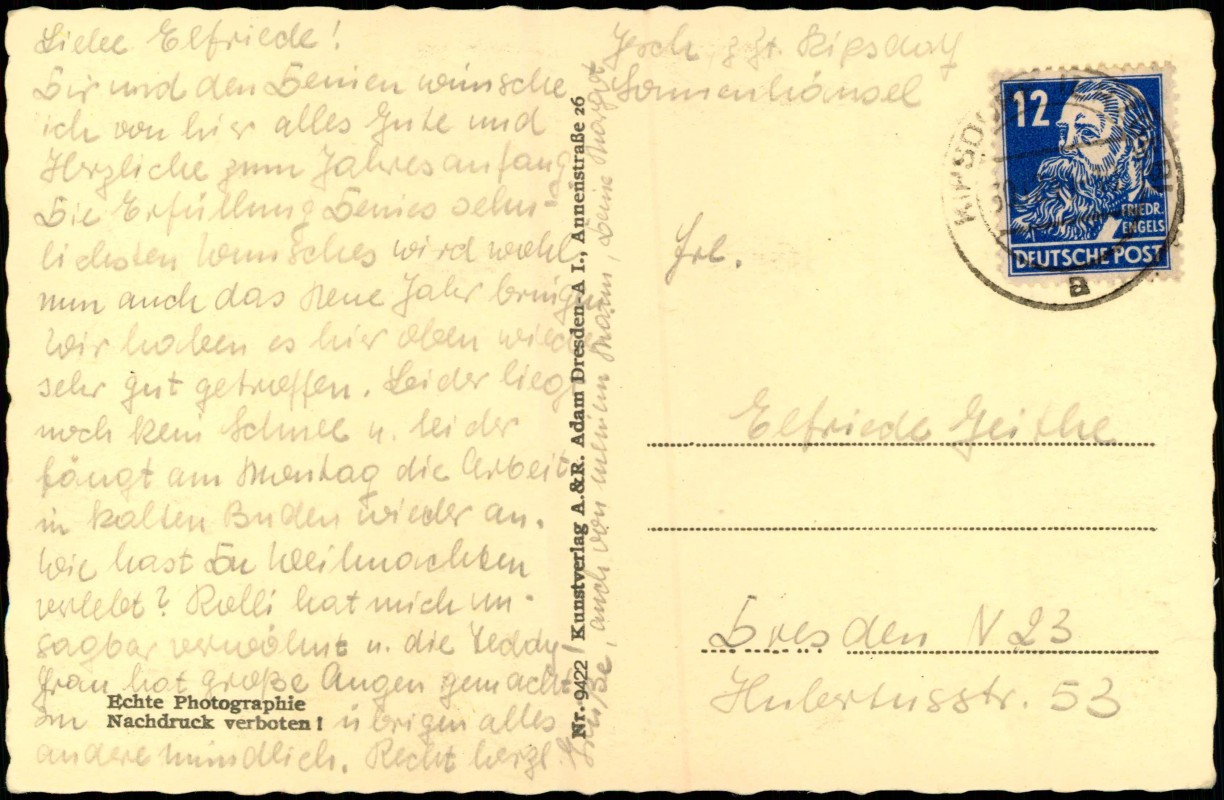 Liebe Elfriede!
Dir und den Deinen wünsche
ich von hier alles Gute und
Herzliche zum Jahresanfang.
Die Erfüllung Deines sehn-
lichsten Wunsches wird wohl
nun auch das Neue Jahr bringen.
Wir haben es hier oben wieder
sehr gut getroffen. Leider liegt
noch kein Schnee u. leider
fängt am Montag die Arbeit
in kalten Buden wieder an.
Wie hast Du Weihnachten
verlebt? Rolli hat mich un-
sagbar verwöhnt u. die Teddy
frau hat große Augen gemacht.
Im übrigen alles
andere mündlich. Recht herzl.
Grüße, auch von meinem Mann, Deine Margot
Echte Photographie
Nachdruck verboten!
Nr. 9422 / Kunstverlag A. & R. Adam Dresden-A I., Annenstraße 26
z. Zt. Kipsdorf
Sonnenhänsel
12
FRIEDR.
ENGELS
DEUTSCHE POST
KIPSDO
a
Frl.
Elfriede Geithe
Dresden N 23
Hubertusstr. 53